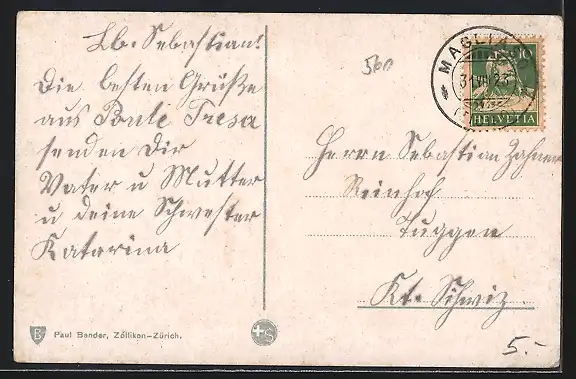 Lb. Sebastian!
Die besten Grüße
aus Ponte Tresa
senden Dir
Vater u Mutter
u deine Schwester
Katarina
560
MAGLIASO
10
HELVETIA
Herrn Sebastian Zahner
Reinhof
Tuggen
Kt. Schwiz
5.-
Paul Bender, Zollikon-Zürich.